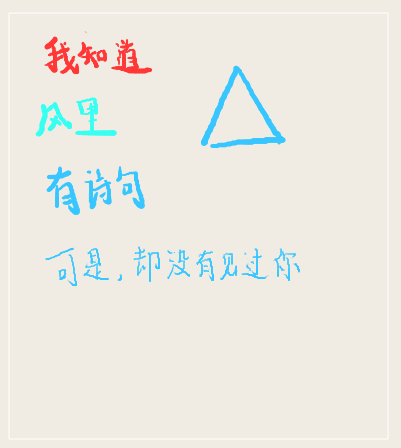 我知道
风里
有诗句
可是,却没有见过你